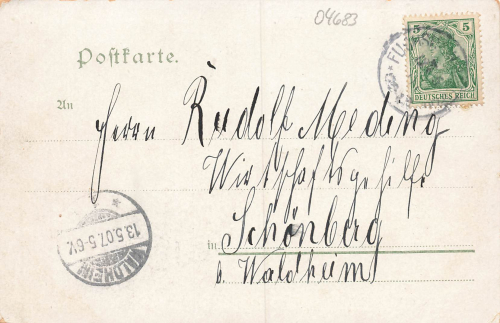 04683
Postkarte.
5 5
DEUTSCHES REICH
An
Herrn Rudolf Meding
Wirtschaftsgehilfe
in Schönberg
b. Waldheim
WALDHEIM
13.5.07.5-6V.